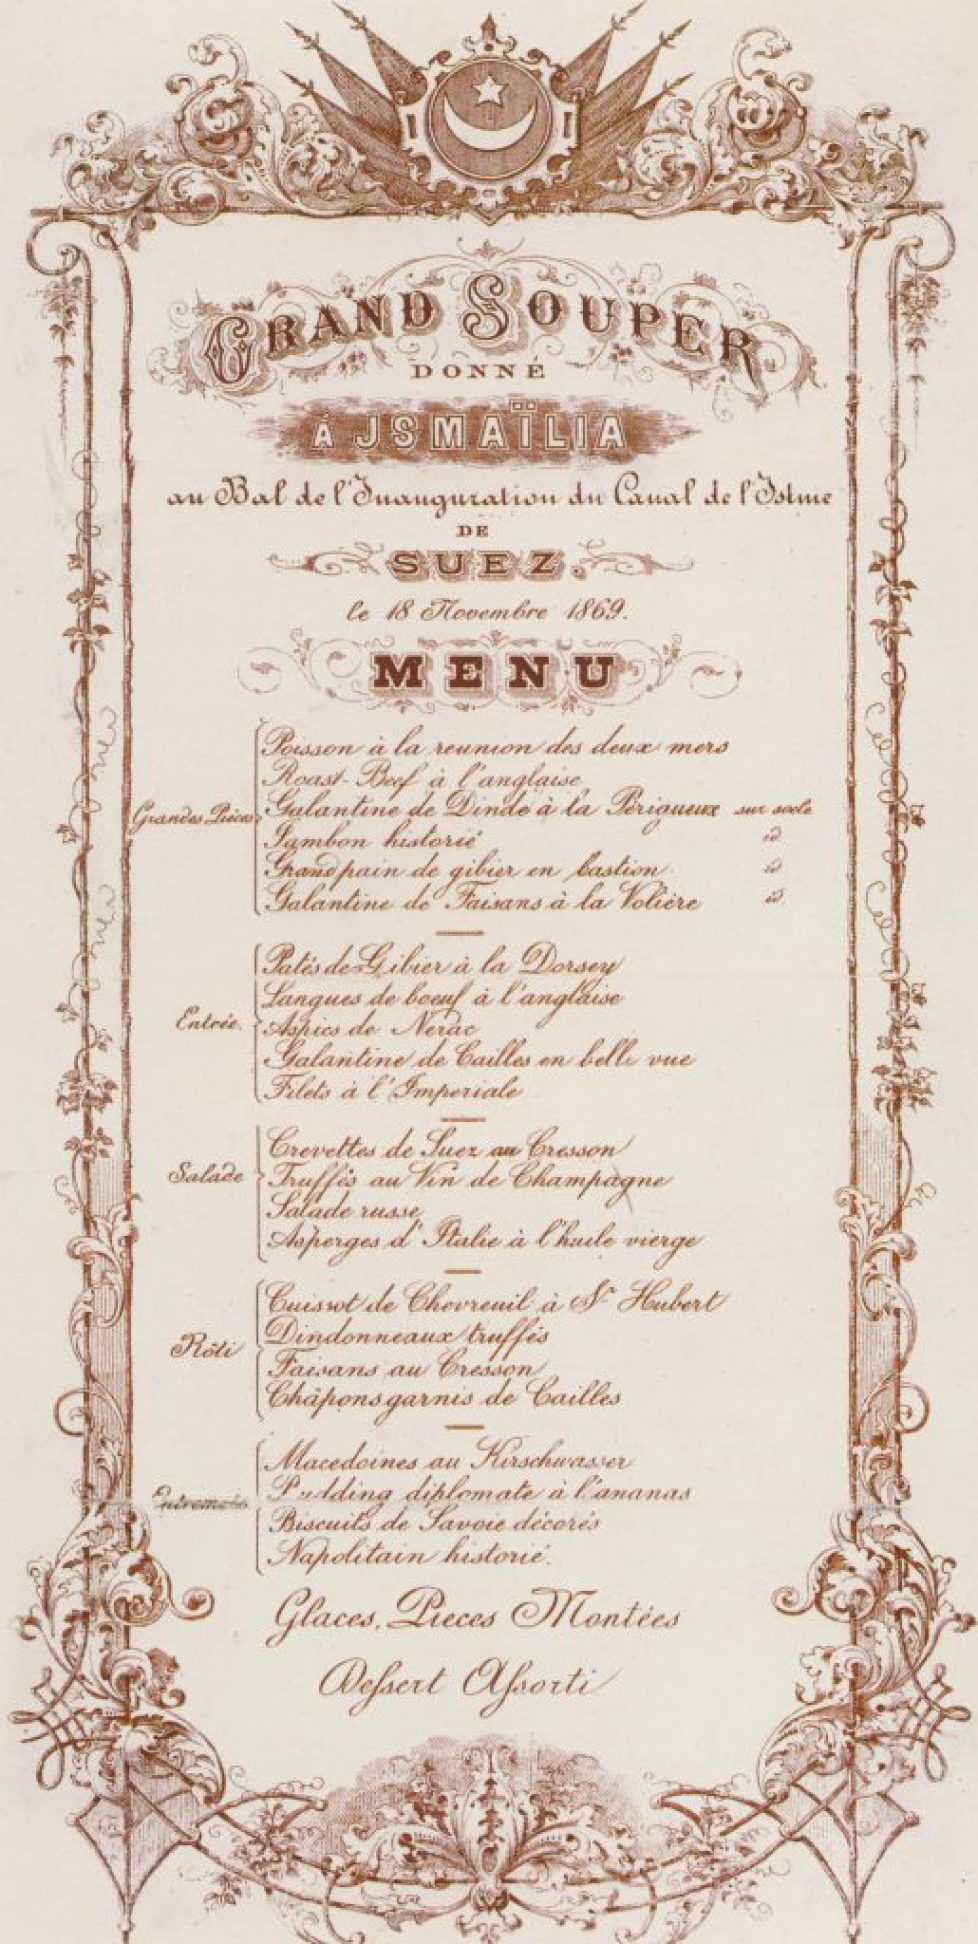 GRAND SOUPER
DONNÉ
À JSMAÏLIA
au Bal de l'Inauguration du Canal de l'Istme
DE
SUEZ.
le 18 Novembre 1869.
MENU
Grandes Pièces
Poisson à la reunion des deux mers
Roast-Beef à l'anglaise
Galantine de Dinde à la Périgueux sur socle
Jambon historié id.
Grand pain de gibier en bastion id.
Galantine de Faisans à la Volière id.
Entrée.
Patés de Gibier à la Dorsey
Langues de boeuf à l'anglaise
Aspics de Nerac
Galantine de Cailles en belle vue
Filets à l'Imperiale
Salade
Crevettes de Suez au Cresson
Truffés au Vin de Champagne
Salade russe
Asperges d'Italie à l'huile vierge
Rôti
Cuissot de Chevreuil à St Hubert
Dindonneaux truffés
Faisans au Cresson
Châpons garnis de Cailles
Entremets
Macedoines au Kirschwasser
Pudding diplomate à l'ananas
Biscuits de Savoie décorés
Napolitain historié.
Glaces, Pieces Montées
Dessert Assorti